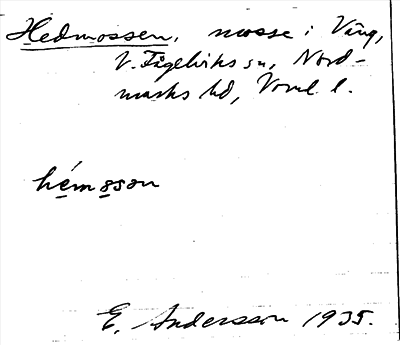 Hedmossen, mosse i Vång,
V. Fågelviks sn, Nord-
marks hd, Vrml. l.
hémosson
E. Andersson 1935.